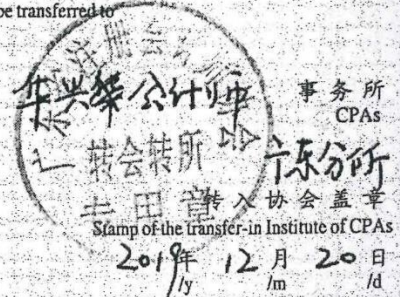 be transferred to
华兴 会计师 事务所
CPAs
广东分所
转会转所
专用章
转入协会盖章
Stamp of the transfer-in Institute of CPAs
2019年 12月 20日
/y /m /d